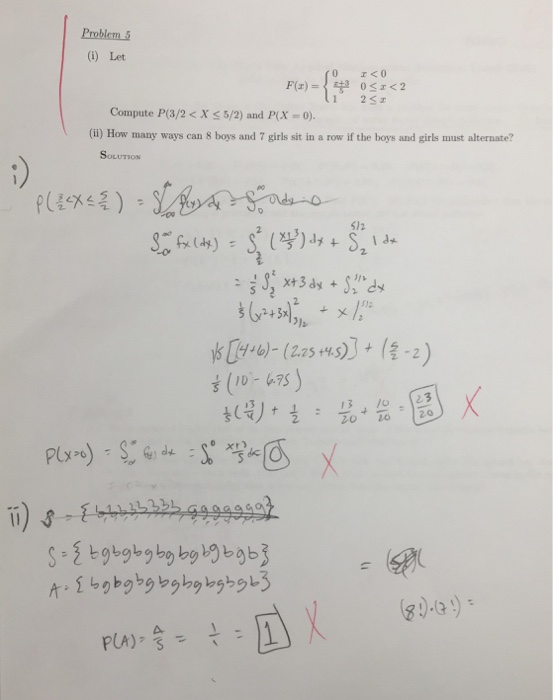 Problem 5
(i) Let
F(x) = { 0 x < 0
x+3/5 0 ≤ x < 2
1 2 ≤ x
Compute P(3/2 < X ≤ 5/2) and P(X = 0).
(ii) How many ways can 8 boys and 7 girls sit in a row if the boys and girls must alternate?
SOLUTION
i)
P(3/2 < X ≤ 5/2) =
∫_{-∞}^{∞} fx(dx) = ∫_{3/2}^{2} (x+3/5) dx + ∫_{2}^{5/2} 1 dx
= 1/5 ∫_{3/2}^{2} x+3 dx + ∫_{2}^{5/2} dx
1/5 (x²+3x)|_{3/2}^{2} + x|_{2}^{5/2}
1/5 [(4+6)-(2.25+4.5)] + (5/2 - 2)
1/5 (10 - 6.75)
1/5 (13/4) + 1/2 = 13/20 + 10/20 = 23/20 X
P(X=0) = ∫ f(x) dx = ∫_{0}^{0} x+3/5 dx = 0 X
ii) S = {bbbbbbbb, ggggggg}
S = {bgbgbgbgbgbgbgb}
A = {bgbgbgbgbgbgbgb}
=
(8!)·(7!) =
P(A) = A/S = 1/1 = 1 X